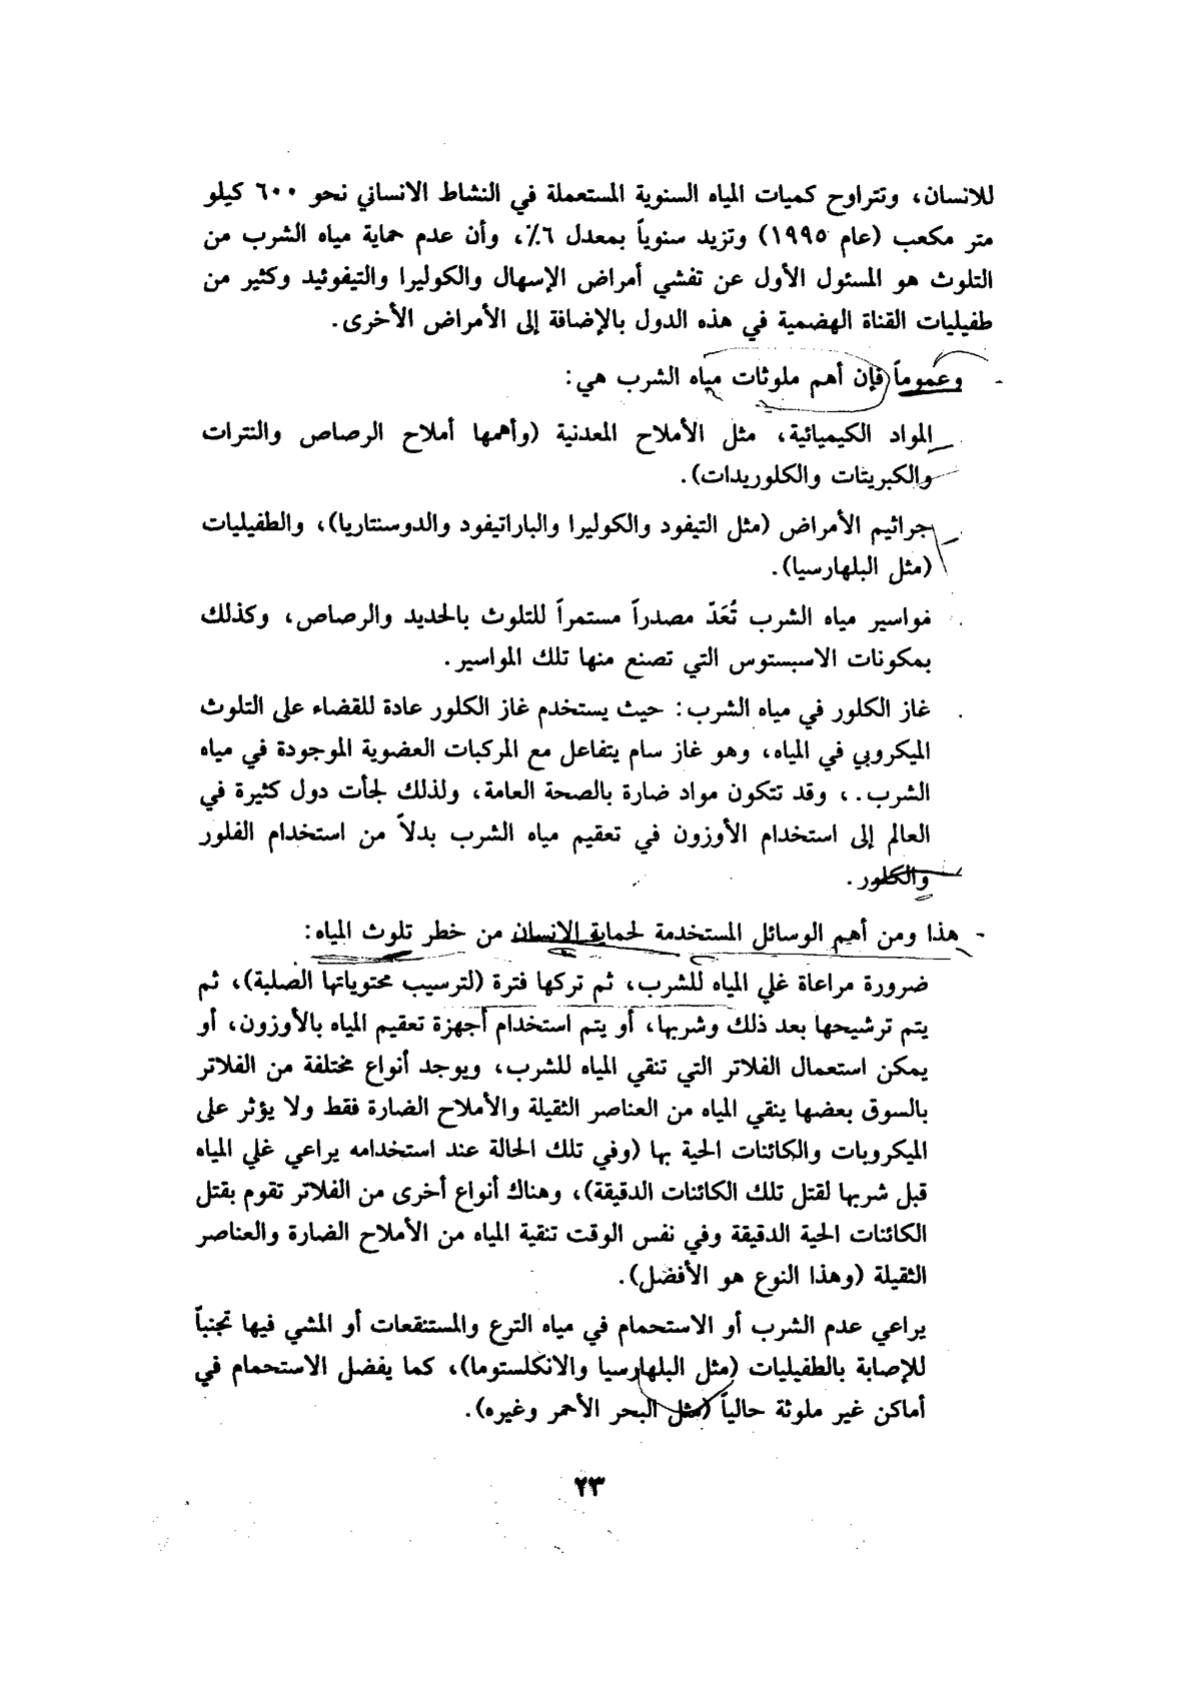 للانسان، وتتراوح كميات المياه السنوية المستعملة في النشاط الانساني نحو ٦٠٠ كيلو
متر مكعب (عام ١٩٩٥) وتزيد سنوياً بمعدل ٦٪، وأن عدم حماية مياه الشرب من
التلوث هو المسئول الأول عن تفشي أمراض الإسهال والكوليرا والتيفوئيد وكثير من
طفيليات القناة الهضمية في هذه الدول بالإضافة إلى الأمراض الأخرى.
- وعموماً فإن أهم ملوثات مياه الشرب هي:
المواد الكيميائية، مثل الأملاح المعدنية (وأهمها أملاح الرصاص والنترات
والكبريتات والكلوريدات).
جراثيم الأمراض (مثل التيفود والكوليرا والباراتيفود والدوسنتاريا)، والطفيليات
(مثل البلهارسيا).
. مواسير مياه الشرب تُعَدّ مصدراً مستمراً للتلوث بالحديد والرصاص، وكذلك
بمكونات الاسبستوس التي تصنع منها تلك المواسير.
. غاز الكلور في مياه الشرب: حيث يستخدم غاز الكلور عادة للقضاء على التلوث
الميكروبي في المياه، وهو غاز سام يتفاعل مع المركبات العضوية الموجودة في مياه
الشرب.، وقد تتكون مواد ضارة بالصحة العامة، ولذلك لجأت دول كثيرة في
العالم إلى استخدام الأوزون في تعقيم مياه الشرب بدلاً من استخدام الفلور
والكلور.
- هذا ومن أهم الوسائل المستخدمة لحماية الانسان من خطر تلوث المياه:
ضرورة مراعاة غلي المياه للشرب، ثم تركها فترة (لترسيب محتوياتها الصلبة)، ثم
يتم ترشيحها بعد ذلك وشربها، أو يتم استخدام أجهزة تعقيم المياه بالأوزون، أو
يمكن استعمال الفلاتر التي تنقي المياه للشرب، ويوجد أنواع مختلفة من الفلاتر
بالسوق بعضها ينقي المياه من العناصر الثقيلة والأملاح الضارة فقط ولا يؤثر على
الميكروبات والكائنات الحية بها (وفي تلك الحالة عند استخدامه يراعي غلي المياه
قبل شربها لقتل تلك الكائنات الدقيقة)، وهناك أنواع أخرى من الفلاتر تقوم بقتل
الكائنات الحية الدقيقة وفي نفس الوقت تنقية المياه من الأملاح الضارة والعناصر
الثقيلة (وهذا النوع هو الأفضل).
يراعي عدم الشرب أو الاستحمام في مياه الترع والمستنقعات أو المشي فيها تجنباً
للإصابة بالطفيليات (مثل البلهارسيا والانكلستوما)، كما يفضل الاستحمام في
أماكن غير ملوثة حالياً (مثل البحر الأحمر وغيره).
٢٣